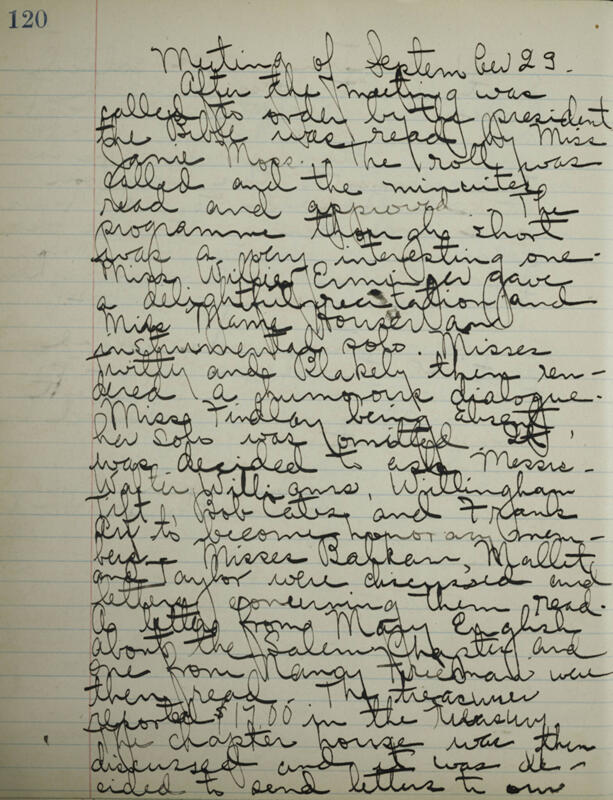 120
Meeting of September 29.
After the meeting was
called to order by the president
the Bible was read by Miss
Janie Moss. The roll was
called and the minutes
read and approved. The
programme though short
was a very interesting one.
Miss Willie Erminger gave
a delightful recitation and
Miss Mamie Houser an
instrumental solo. Misses
Witty and Blakely then ren-
dered a humorous dialogue.
Miss Findlay being absent
her solo was omitted. It
was decided to ask Messrs-
Walter Williams, Willingham
Tift, Bob Cates and Frank
to become honorary mem-
bers- Misses Mallett
and Taylor were discussed and
letters concerning them read.
A letter from Mary English
about the Salem Chapter and
one from Nancy Friedman were
then read. The treasurer
reported $17.00 in the treasury.
The chapter house was then
discussed and it was de-
cided to send letters to our